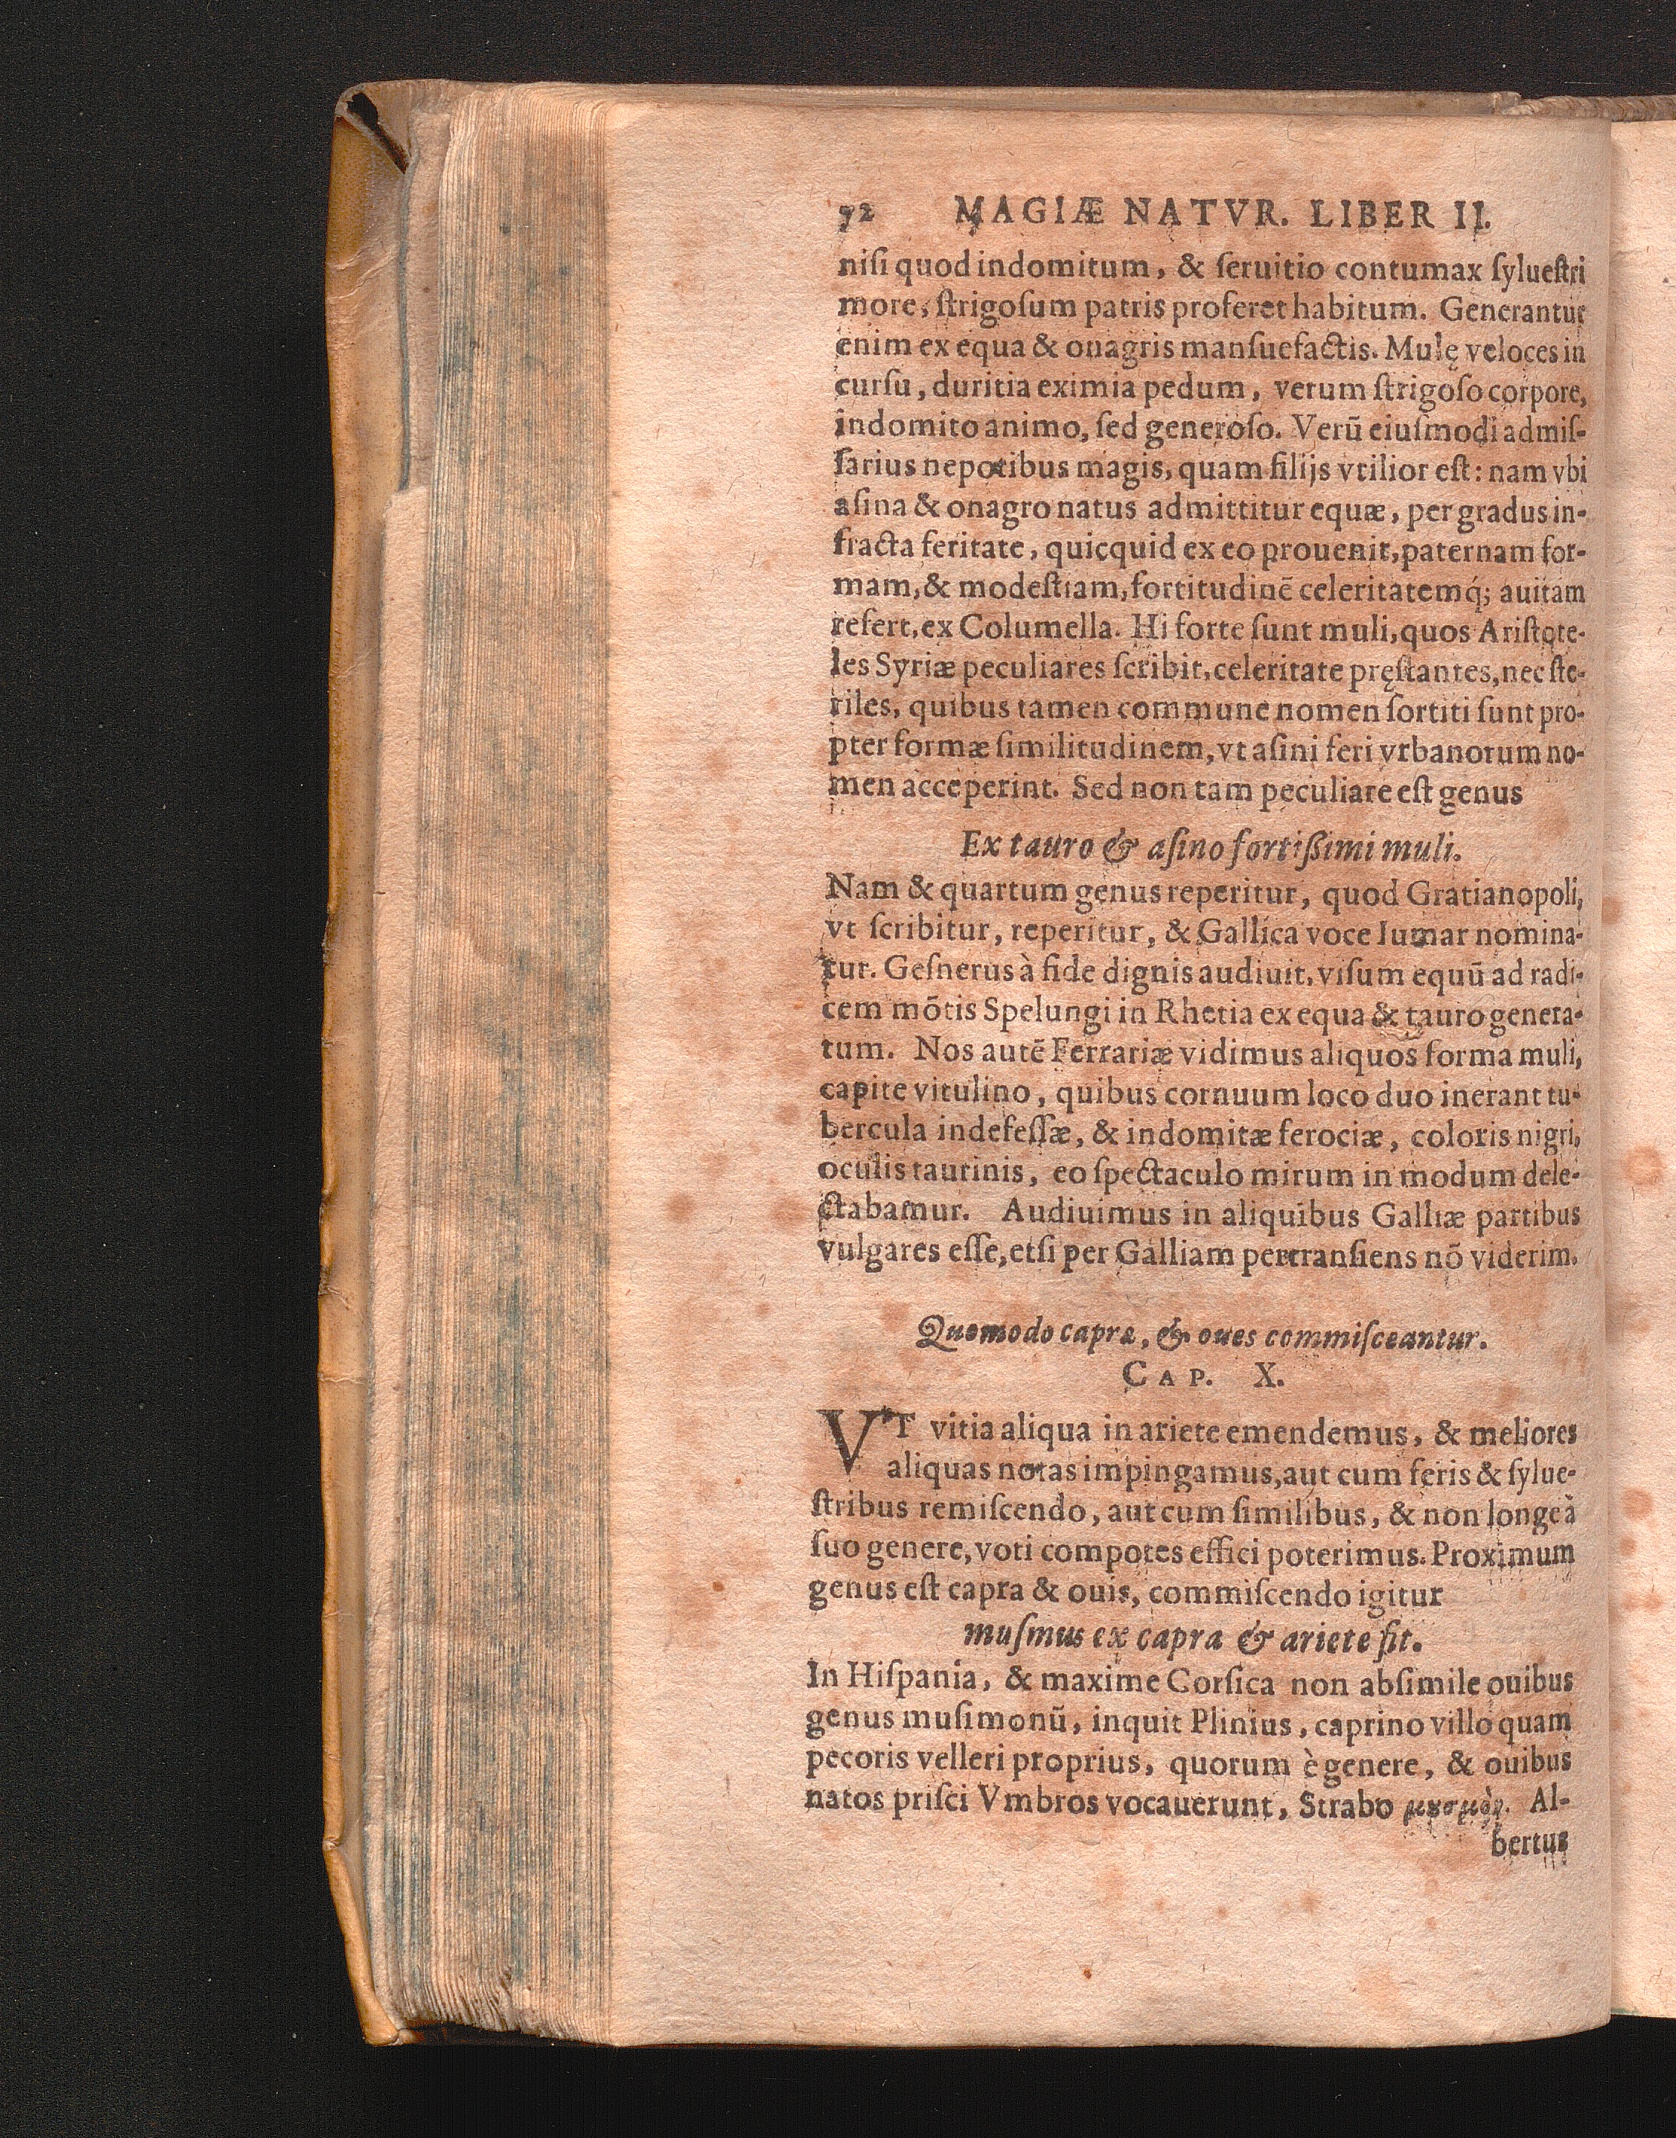 72 MAGIÆ NATVR. LIBER II.
niſi quod indomitum, & ſeruitio contumax ſylueſtri
more, ſtrigoſum patris proferet habitum. Generantur
enim ex equa & onagris manſuefactis. Mulę veloces in
curſu, duritia eximia pedum, verum ſtrigoſo corpore,
indomito animo, ſed generoſo. Verū eiuſmodi admiſ-
ſarius nepotibus magis, quam filijs vtilior eſt: nam vbi
aſina & onagro natus admittitur equæ, per gradus in-
fracta feritate, quicquid ex eo prouenit, paternam for-
mam, & modeſtiam, fortitudinē celeritatemq́; auitam
refert, ex Columella. Hi forte ſunt muli, quos Ariſtote-
les Syriæ peculiares ſcribit, celeritate pręſtantes, nec ſte-
riles, quibus tamen commune nomen ſortiti ſunt pro-
pter formæ ſimilitudinem, vt aſini feri vrbanorum no-
men acceperint. Sed non tam peculiare eſt genus
Ex tauro & aſino fortißimi muli.
Nam & quartum genus reperitur, quod Gratianopoli,
vt ſcribitur, reperitur, & Gallica voce Iumar nomina-
tur. Geſnerus à fide dignis audiuit, viſum equū ad radi-
cem mōtis Spelungi in Rhetia ex equa & tauro genera-
tum. Nos autē Ferrariæ vidimus aliquos forma muli,
capite vitulino, quibus cornuum loco duo inerant tu-
bercula indefeſſæ, & indomitæ ferociæ, coloris nigri,
oculis taurinis, eo ſpectaculo mirum in modum dele-
ctabamur. Audiuimus in aliquibus Galliæ partibus
vulgares eſſe, etſi per Galliam pertranſiens nō viderim.
Quomodo capræ, & oues commiſceantur.
CAP. X.
VT vitia aliqua in ariete emendemus, & meliores
aliquas notas impingamus, aut cum feris & ſylue-
ſtribus remiſcendo, aut cum ſimilibus, & non longe à
ſuo genere, voti compotes effici poterimus. Proximum
genus eſt capra & ouis, commiſcendo igitur
muſmus ex capra & ariete fit.
In Hiſpania, & maxime Corſica non abſimile ouibus
genus muſimonū, inquit Plinius, caprino villo quam
pecoris velleri proprius, quorum è genere, & ouibus
natos priſci Vmbros vocauerunt, Strabo Al-
bertus